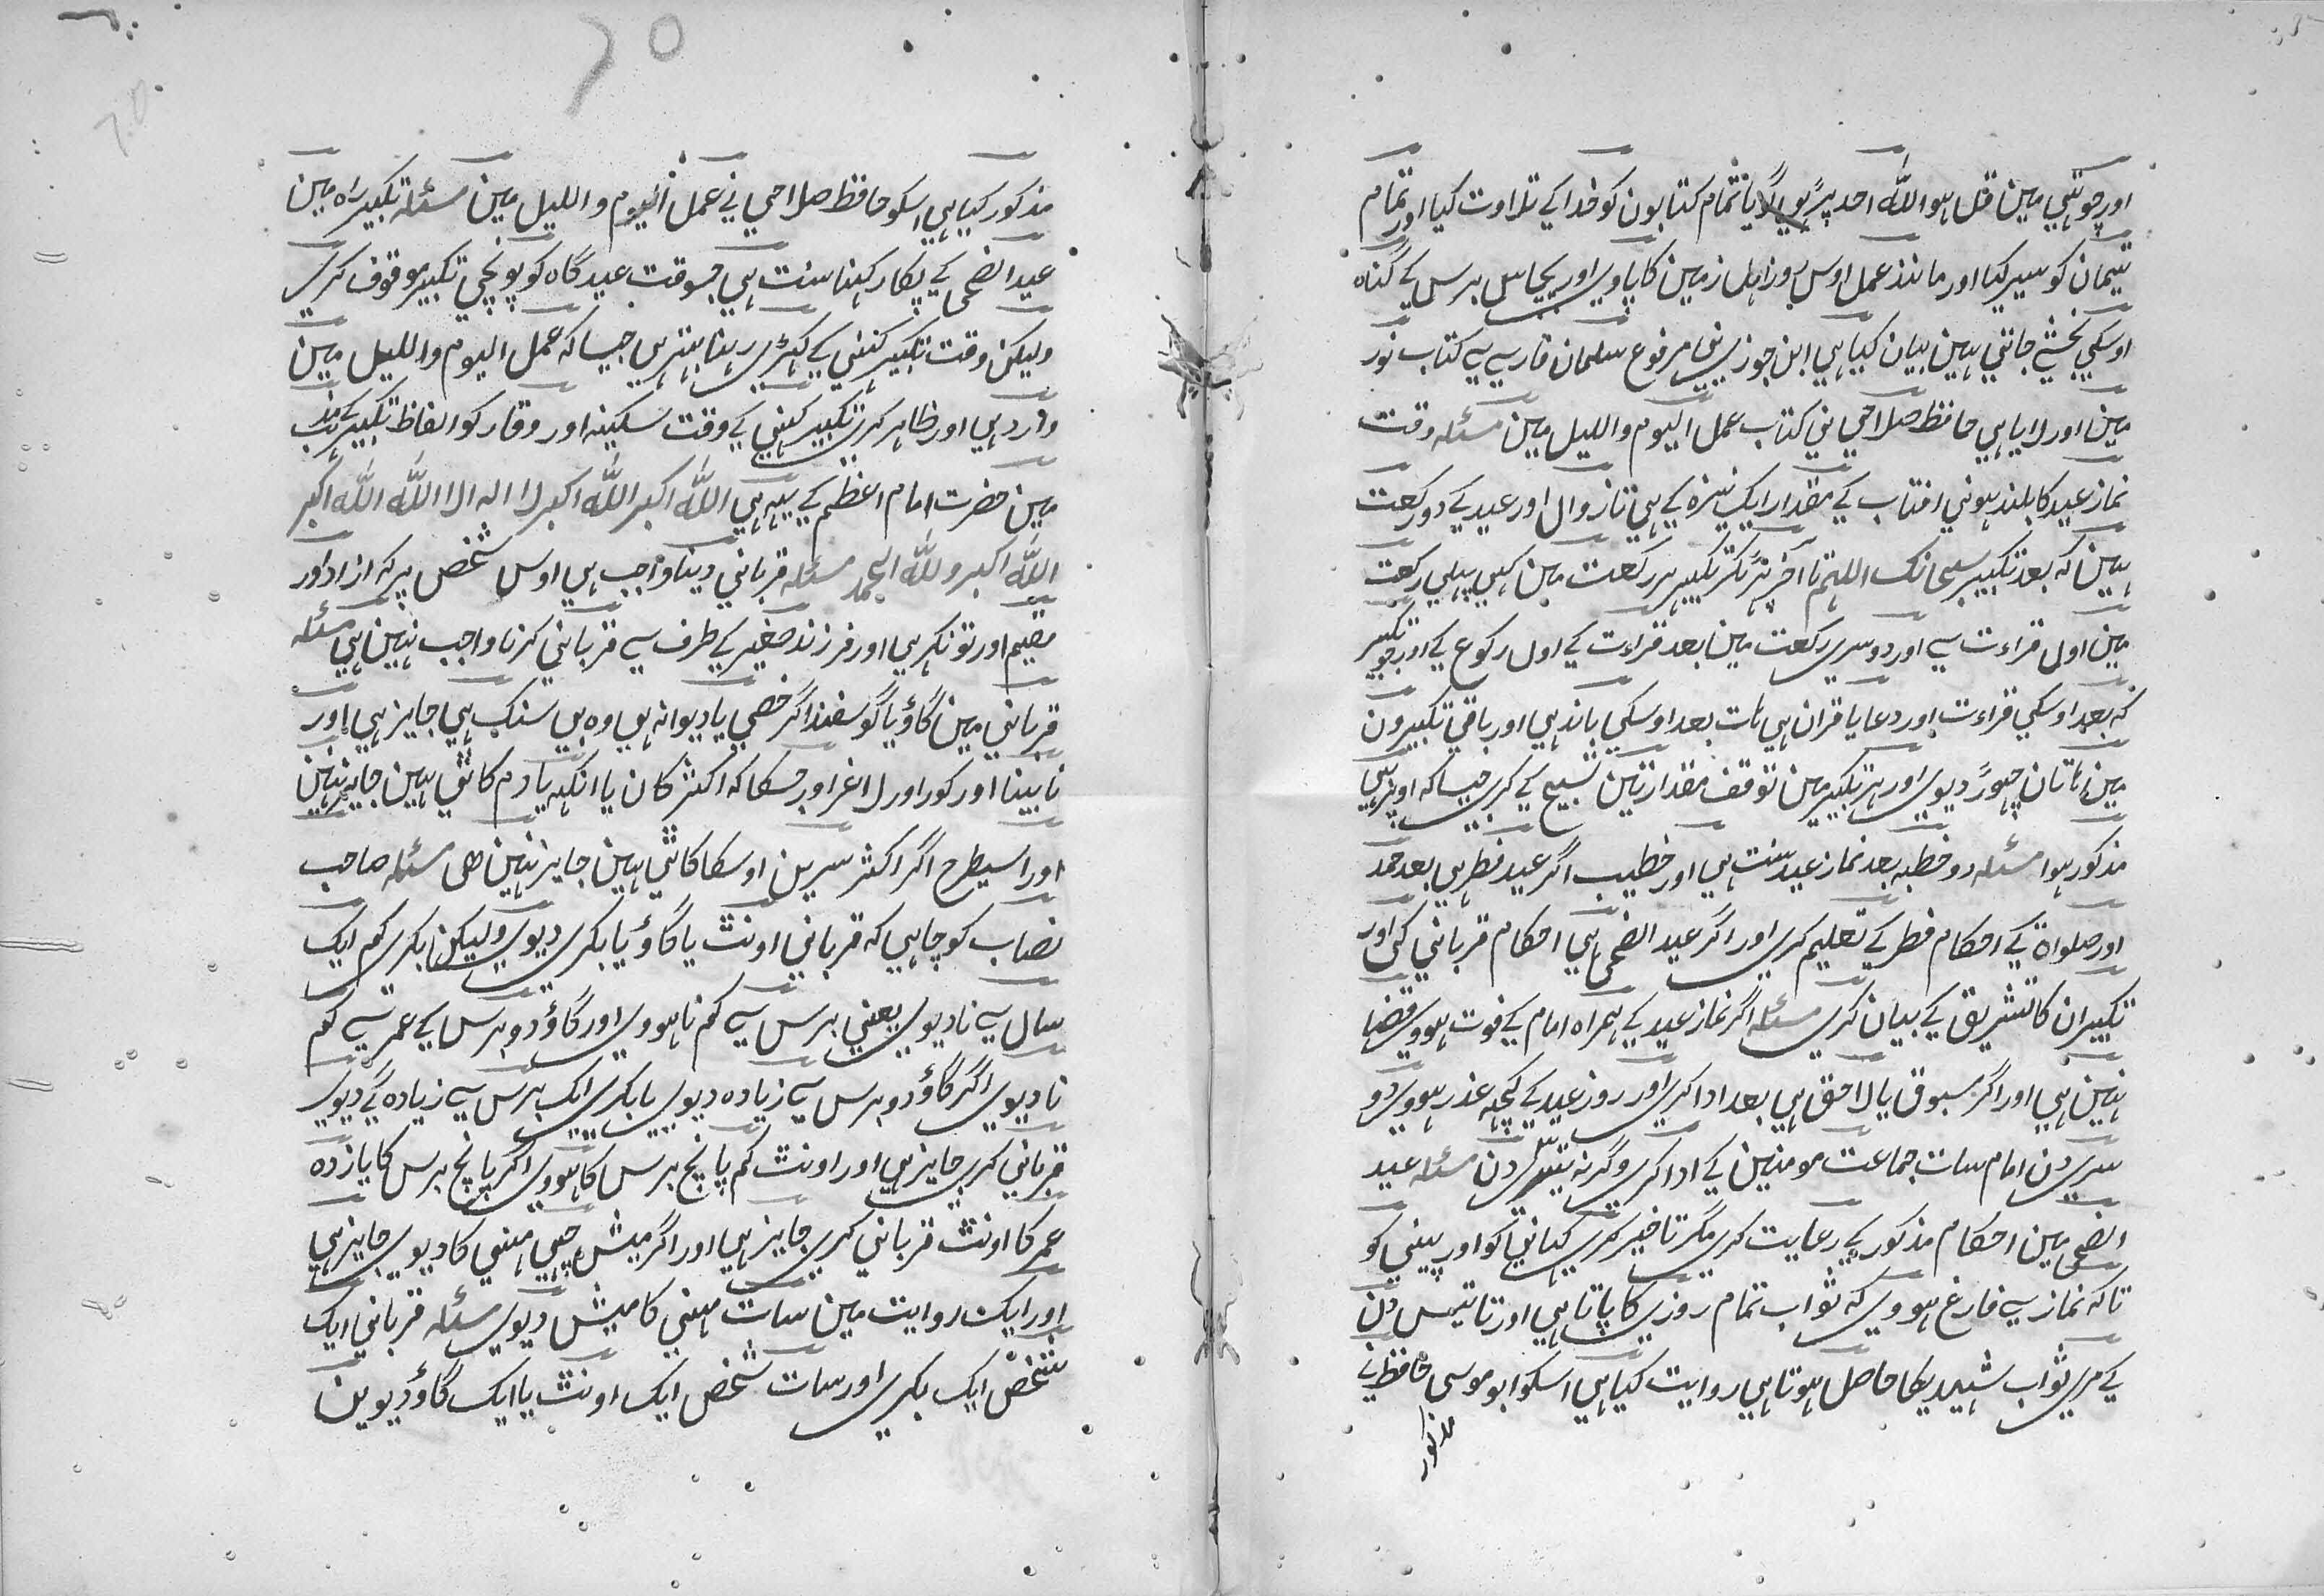 اور چوتہی مین قل ہو اللہ احد پڑہیگا گویا تمام کتابون کو خدا کے تلاوت کیا اور تمام
یتیمان کو سیر کیا اور مانند عمل اوس روز اہل زمین کا پاوی اور پچاس برس کے گناہ
اوسکی بخشے جاتی ہین بیان کیا ہی ابن جوزی نی مرفوع سلمان فارسی سے کتاب نور
مین اور لایا ہی حافظ صلاحی نی کتاب عمل الیوم واللیل مین مسئلہ وقت
نماز عید کا بلند ہونی افتاب کے مقدار ایک نیزہ کے ہی تا زوال اور عید کے دو رکعت
ہین کہ بعد تکبیر سبحانک اللہم تا آخر پڑکر تکبیر ہر رکعت مین کہی پہلی رکعت
مین اول قراءت سے اور دوسری رکعت مین بعد قراءت کے اول رکوع کے اور جو تکبیر
کہ بعد اوسکی قراءت اور دعا یا قران ہی ہات بعد اوسکی باندہی اور باقی تکبیرون
مین ہاتان چہوڑ دیوی اور ہر تکبیر مین توقف مقدار تین تسبیح کے کری جیسا کہ اوپر ہی
مذکور ہوا مسئلہ دو خطبہ بعد نماز عید سنت ہی اور خطیب اگر عید فطر ہی بعد حمد
اور صلواۃ کے احکام فطر کے تعلیم کری اور اگر عید الضحی ہی احکام قربانی کی اور
تکبیران کا تشریق کے بیان کری مسئلہ اگر نماز عید کے ہمراہ امام کے فوت ہووی قضا
نہین ہی اور اگر مسبوق یا لاحق ہی بعد ادا کری اور روز عید کے کچہ عذر ہووی دو
سری دن امام سات جماعت مومنین کے ادا کری وگرنہ تیسری دن مسئلہ عید
الضحی مین احکام مذکور کے رعایت کری مگر تاخیر کری کہانیکو اور پینی کو
تا کہ نماز سے فارغ ہووی کہ ثواب تمام روزی کا پاتا ہی اور تا تیس دن
کے مری ثواب شہیدیکا حاصل ہوتا ہی روایت کیا ہی اسکو ابو موسی حافظ نے
مذکور
70
مذکور کیا ہی اسکو حافظ صلاحی نے عمل الیوم واللیل مین مسئلہ تکبیر راہ مین
عید الضحی کے پکار کہنا سنت ہی جسوقت عیدگاہ کو پونچی تکبیر موقوف کری
ولیکن وقت تکبیر کہنی کے کہڑی رہنا بہتر ہی جیسا کہ عمل الیوم واللیل مین
وارد ہی اور ظاہر کری تکبیر کہنی کے وقت سکینہ اور وقار کو الفاظ تکبیر کے مذہب
مین حضرت امام اعظم کے یہہ ہی اللہ اکبر اللہ اکبر لا الہ الا اللہ اللہ اکبر
اللہ اکبر و للہ الحمد مسئلہ قربانی دینا واجب ہی اوس شخص پر کہ ازاد اور
مقیم اور تونگر ہی اور فرزند صغیر کے طرف سے قربانی کرنا واجب نہین ہی مسئلہ
قربانی مین گاؤ یا گوسفند اگر خصی یا دیوانہ ہی وہ بی سنگ ہی جایز ہی اور
نابینا اور کور اور لاغر اور جسکا کہ اکثر کان یا انکہہ یا دم کاٹی ہین جایز نہین
اور اسیطرح اگر اکثر سرین اوسکا کاٹی ہین جایز نہین ھی مسئلہ صاحب
نصاب کو چاہی کہ قربانی اونٹ یا گاؤ یا بکری دیوی ولیکن بکری کم ایک
سال سے نا دیوی یعنی برس سے کم نا ہووی اور گاؤ دو برس کے عمر سے کم
نا دیوی اگر گاؤ دو برس سے زیادہ دیوی یا بکری ایک برس سے زیادہ کے دیوی
قربانی کری جایز ہی اور اونٹ کم پانچ برس کا ہووی اگر پانچ برس کا یا زدہ
عمر کا اونٹ قربانی کری جایز ہی اور اگر میش چہی مہنی کا دیوی جایز ہی
اور ایک روایت مین سات مہنی کا میش دیوی مسئلہ قربانی ایک
شخص ایک بکری اور سات شخص ایک اونٹ یا ایک گاؤ دیوین